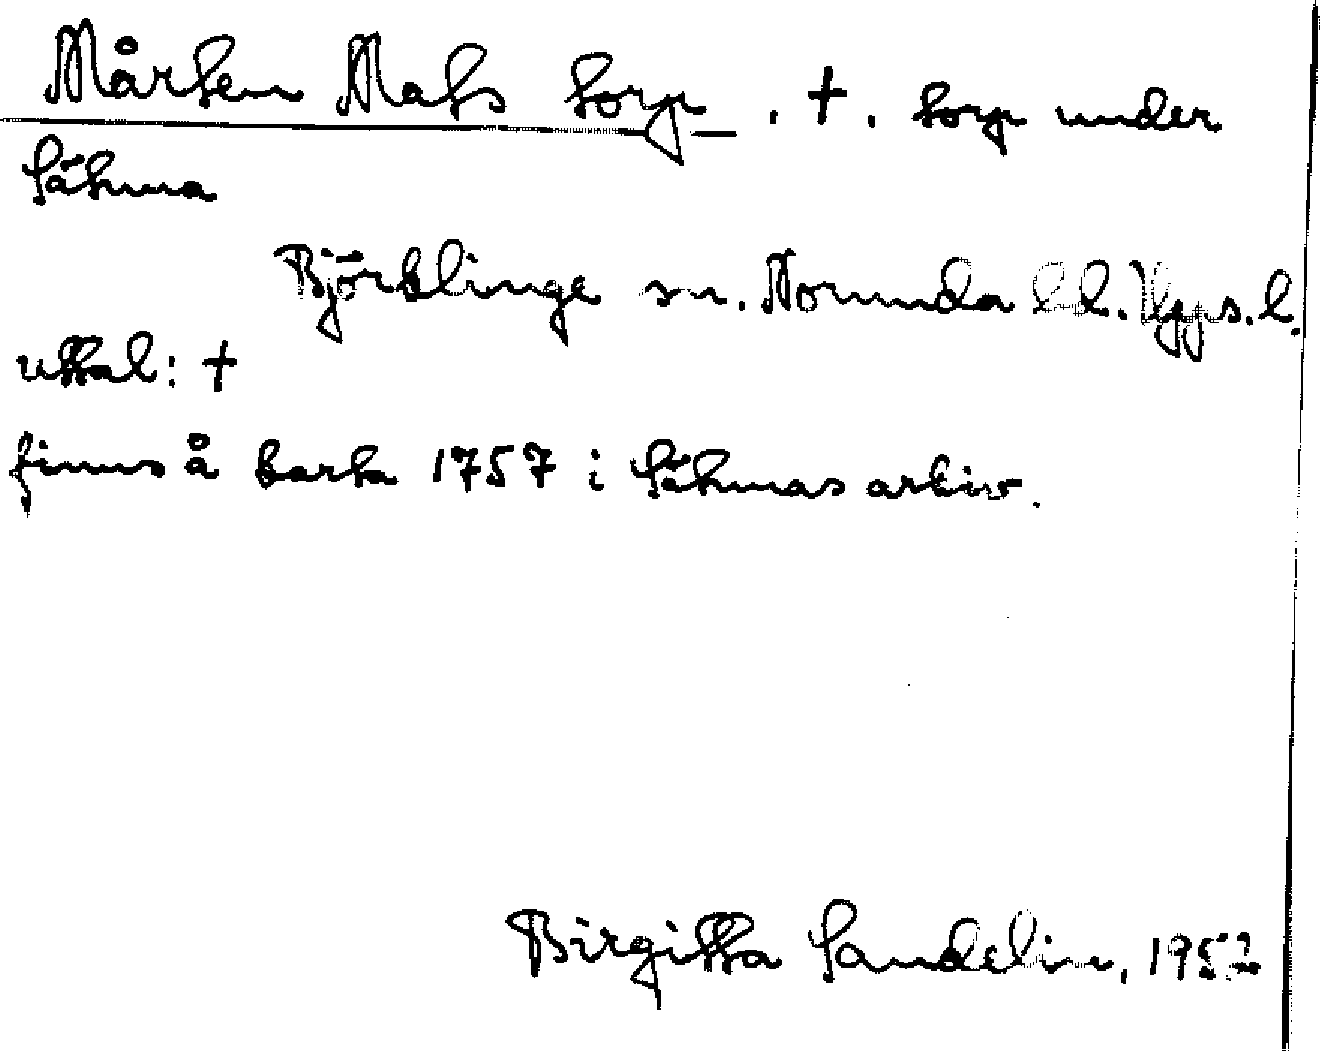 Mårten Mats torp. †. torp under
Sätuna
Björklinge sn. Norunda hd. Upps. l.
uttal: †
finns å karta 1757 i Sätunas arkiv.
Birgitta Sandelin, 1952